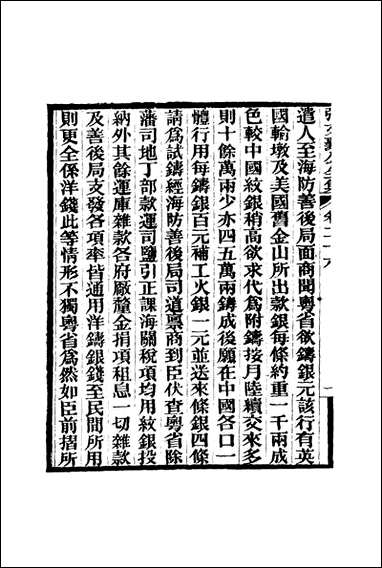 張文襄公全集 卷二十六
遣人至海防善後局面商聞粵省欲鑄銀元該行有英
國輸墩及美國舊金山所出款銀每條約重一千兩成
色較中國紋銀稍高欲求代爲附鑄按月陸續交來多
則十餘萬兩少亦四五萬兩鑄成後願在中國各口一
體行用每鑄銀百元補工火銀一元並送來條銀四條
請爲試鑄經海防善後局司道稟商到臣伏查粵省除
藩司地丁部款運司鹽引正課海關稅項均用紋銀投
納外其餘運庫雜款各府廠釐金捐項租息一切雜款
及善後局支發各項率皆通用洋鑄銀錢至民間所用
則更全係洋錢此等情形不獨粵省爲然如臣前摺所